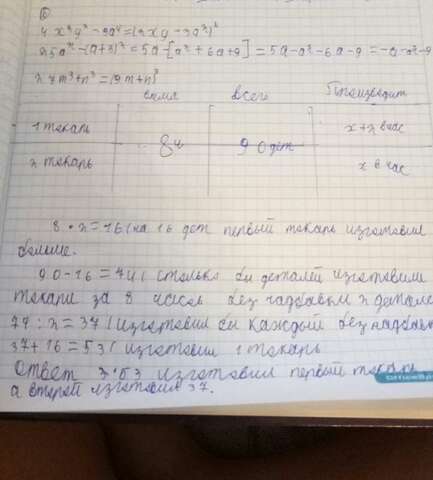 ⑥
4x⁴y² - 9a⁴ = (2xy - 3a²)²
25a² - (a+3)² = 5a - [a² + 6a + 9] = 5a - a² - 6a - 9 = -a - a² - 9
27m³ + n³ = (9m + n)³
время всего Производит
1 токарь 8ч 90 дет x+2 в час
2 токарь x в час
8 · 2 = 16 (на 16 дет первый токарь изготовил
больше.
90 - 16 = 74 ( столько бы деталей изготовили
токари за 8 часов без надбавки 2 детале
74 : 2 = 37 ( изготовил бы каждый без надбав
37 + 16 = 53 ( изготовил 1 токарь
Ответ : 53 изготовил первый токарь
а второй изготовил 37.